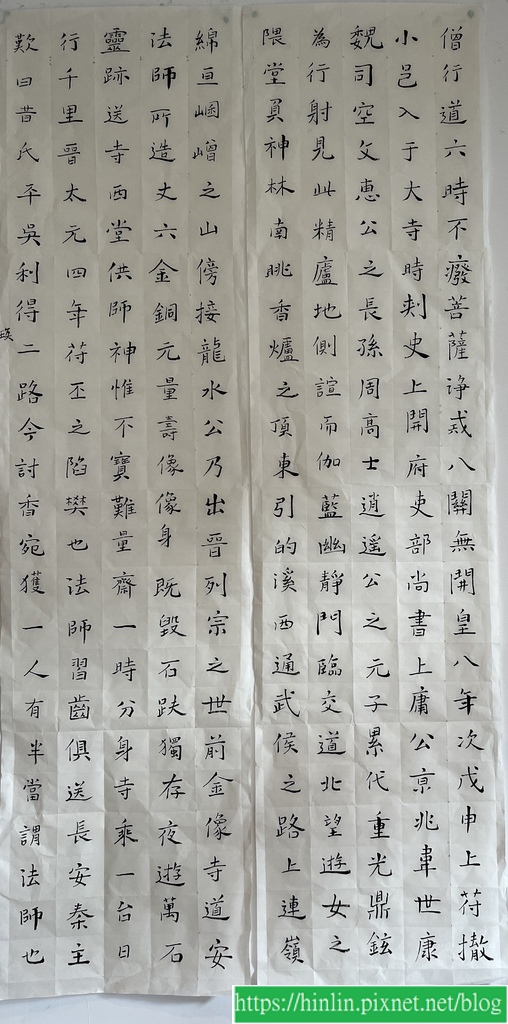 僧行道六時不癈菩薩诤戎八關無開皇八年次戊申上苻撤
小邑入于大寺時刾史上開府吏部尚書上庸公亰兆韋世康
魏司空文惠公之長孫周高士逍遥公之元子累代重光鼎鉉
為行射見此精廬地側諠而伽藍幽靜門臨交道北望遊女之
隈堂負神林南眺香爐之頂東引的溪西通武侯之路上連嶺
綿亘崓嶒之山傍接龍水公乃出晉列宗之世前金像寺道安
法師所造丈六金銅元量壽像像身既毀石趺獨存夜遊萬石
靈跡送寺西堂供師神惟不寶難量齋一時分身寺乘一台日
行千里晉太元四年苻丕之陷樊也法師習齒俱送長安秦主
歎曰昔氏平吳利得二路今討香宛獲一人有半當謂法師也
https://hinlin.pixnet.net/blog